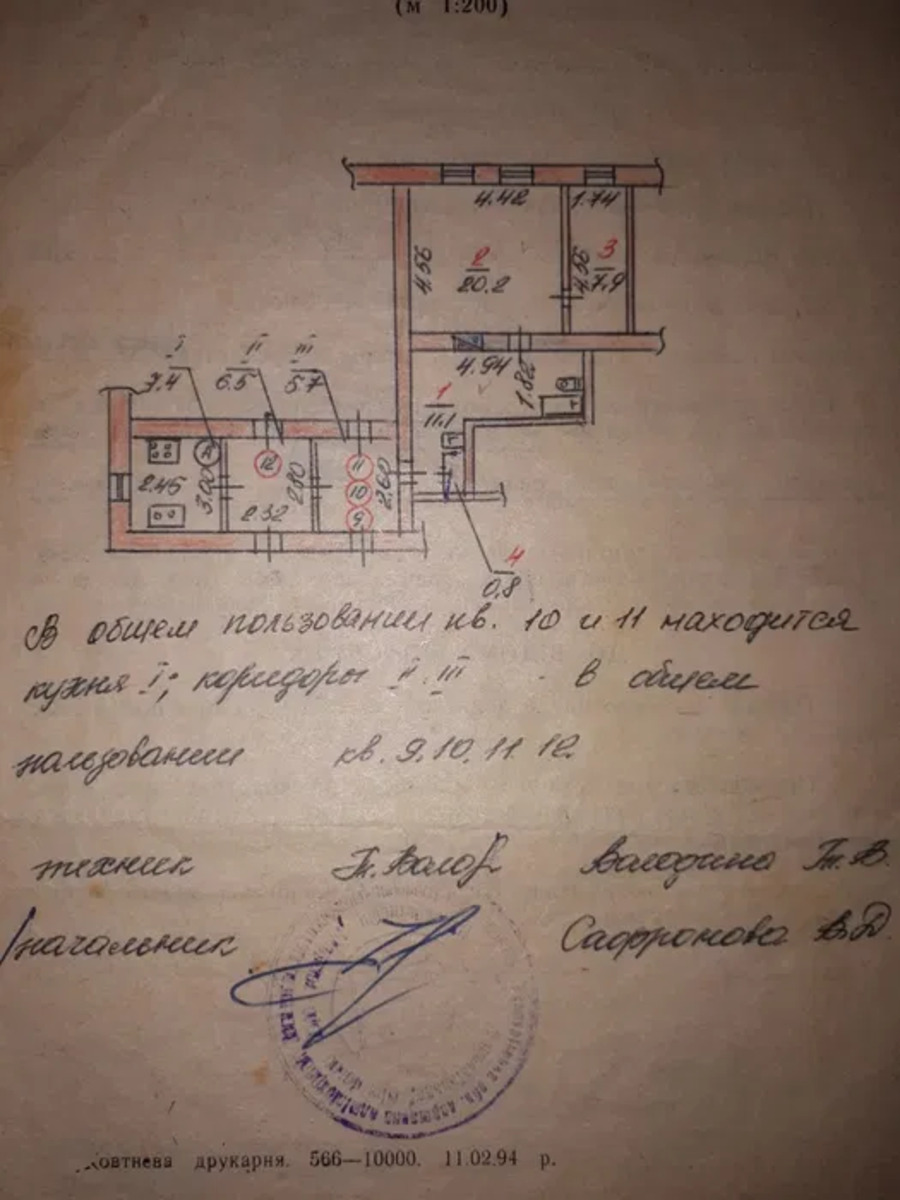 (м 1:200)
4.42
1.74
4.56
2
20.2
4.56
3
7.9
I
7.4
II
6.5
III
5.7
4.94
1.82
1
11.1
2.45
3.00
12
2.80
2.32
11
10
9
2.60
4
0.8
В общем пользовании кв. 10 и 11 находится
кухня I; коридоры II III - в общем
пользовании кв. 9. 10. 11. 12.
техник Володина Т. В.
начальник Сафронова В. Д
овтнева друкарня. 566—10000. 11.02.94 р.